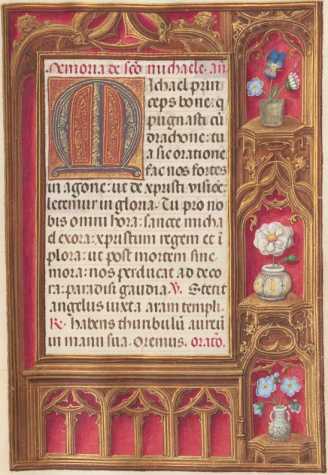 Memoria de sco michaele. añ
Michael prin
ceps bone: q
pugnasti cũ
drachone: tu
a sic oratione
fac nos fortes
in agone: ut de xpristi visiõe
letemur in gloria. Tu pro no
bis omni hora: sancte micha
el exora: xpristum regem et i
plora: ut post mortem sine
mora: nos perducat ad deco
ra: paradisi gaudia. V. Stetit
angelus iuxta aram templi.
Re. habens thuribulũ aureũ
in manu sua. Oremus. orato.